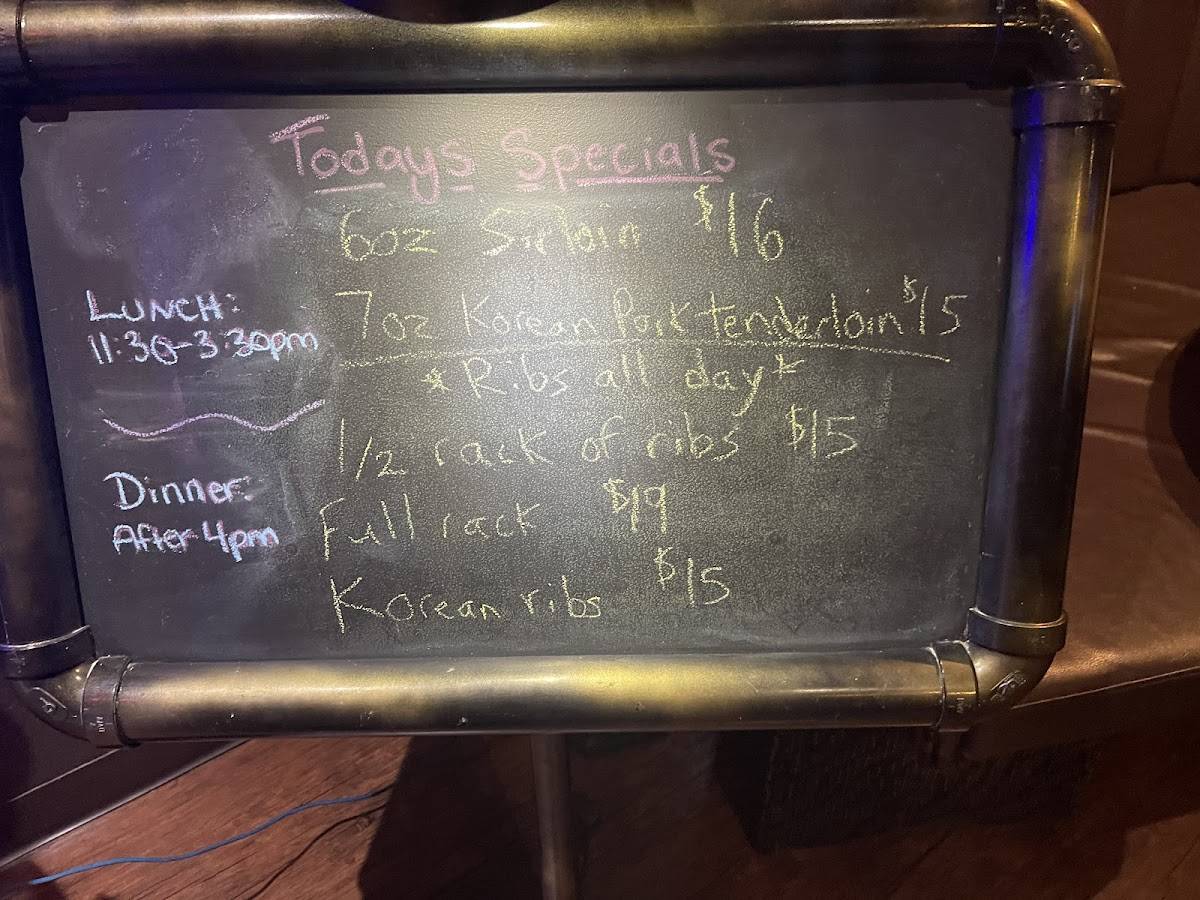 Todays Specials
6oz Sirloin $16
LUNCH:
11:30-3:30pm
7oz Korean Pork tenderloin $15
*Ribs all day*
1/2 rack of ribs $15
Dinner:
After 4pm
Full rack $19
Korean ribs $15